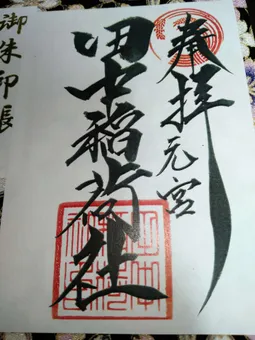 奉拝 元宮
田中稲荷社
御朱印帳